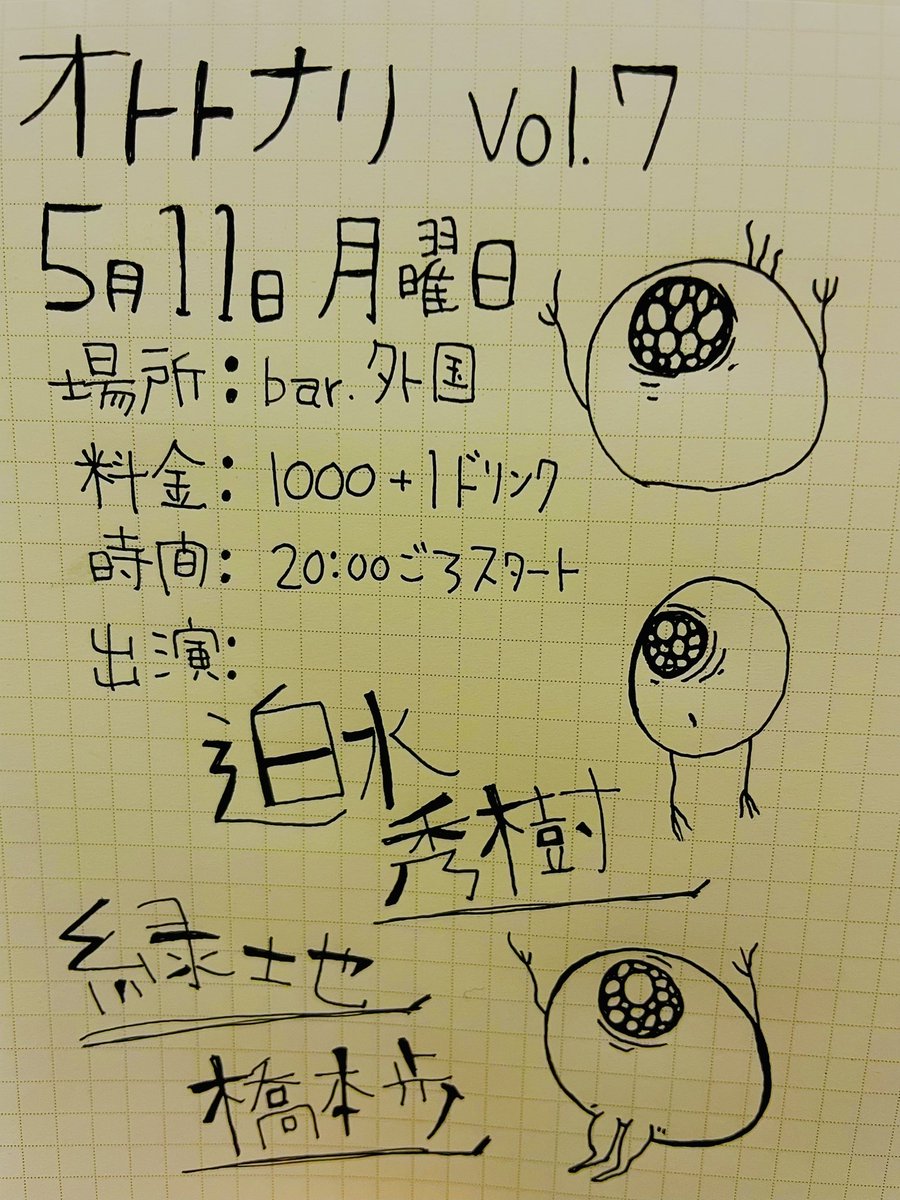 オトトナリ Vol.7
5月11日 月曜日
場所：bar.外国
料金：1000+1ドリンク
時間：20:00ごろスタート
出演：
迫水
秀樹
緑地
橋本歩